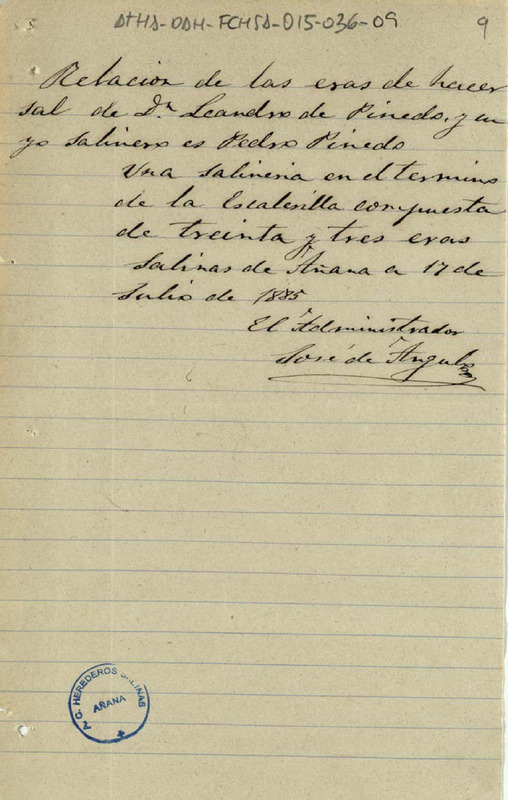 ATHA-DAH-FCHSA-015-036-09
9
Relacion de las eras de hacer
sal de Dn Leandro de Pinedo, y cu
yo salinero es Pedro Pinedo
Una salineria en el termino
de la Escalerilla compuesta
de treinta y tres eras
Salinas de Añana a 17 de
Julio de 1885
El Administrador
José de Angulo
C. HEREDEROS SALINAS
AÑANA